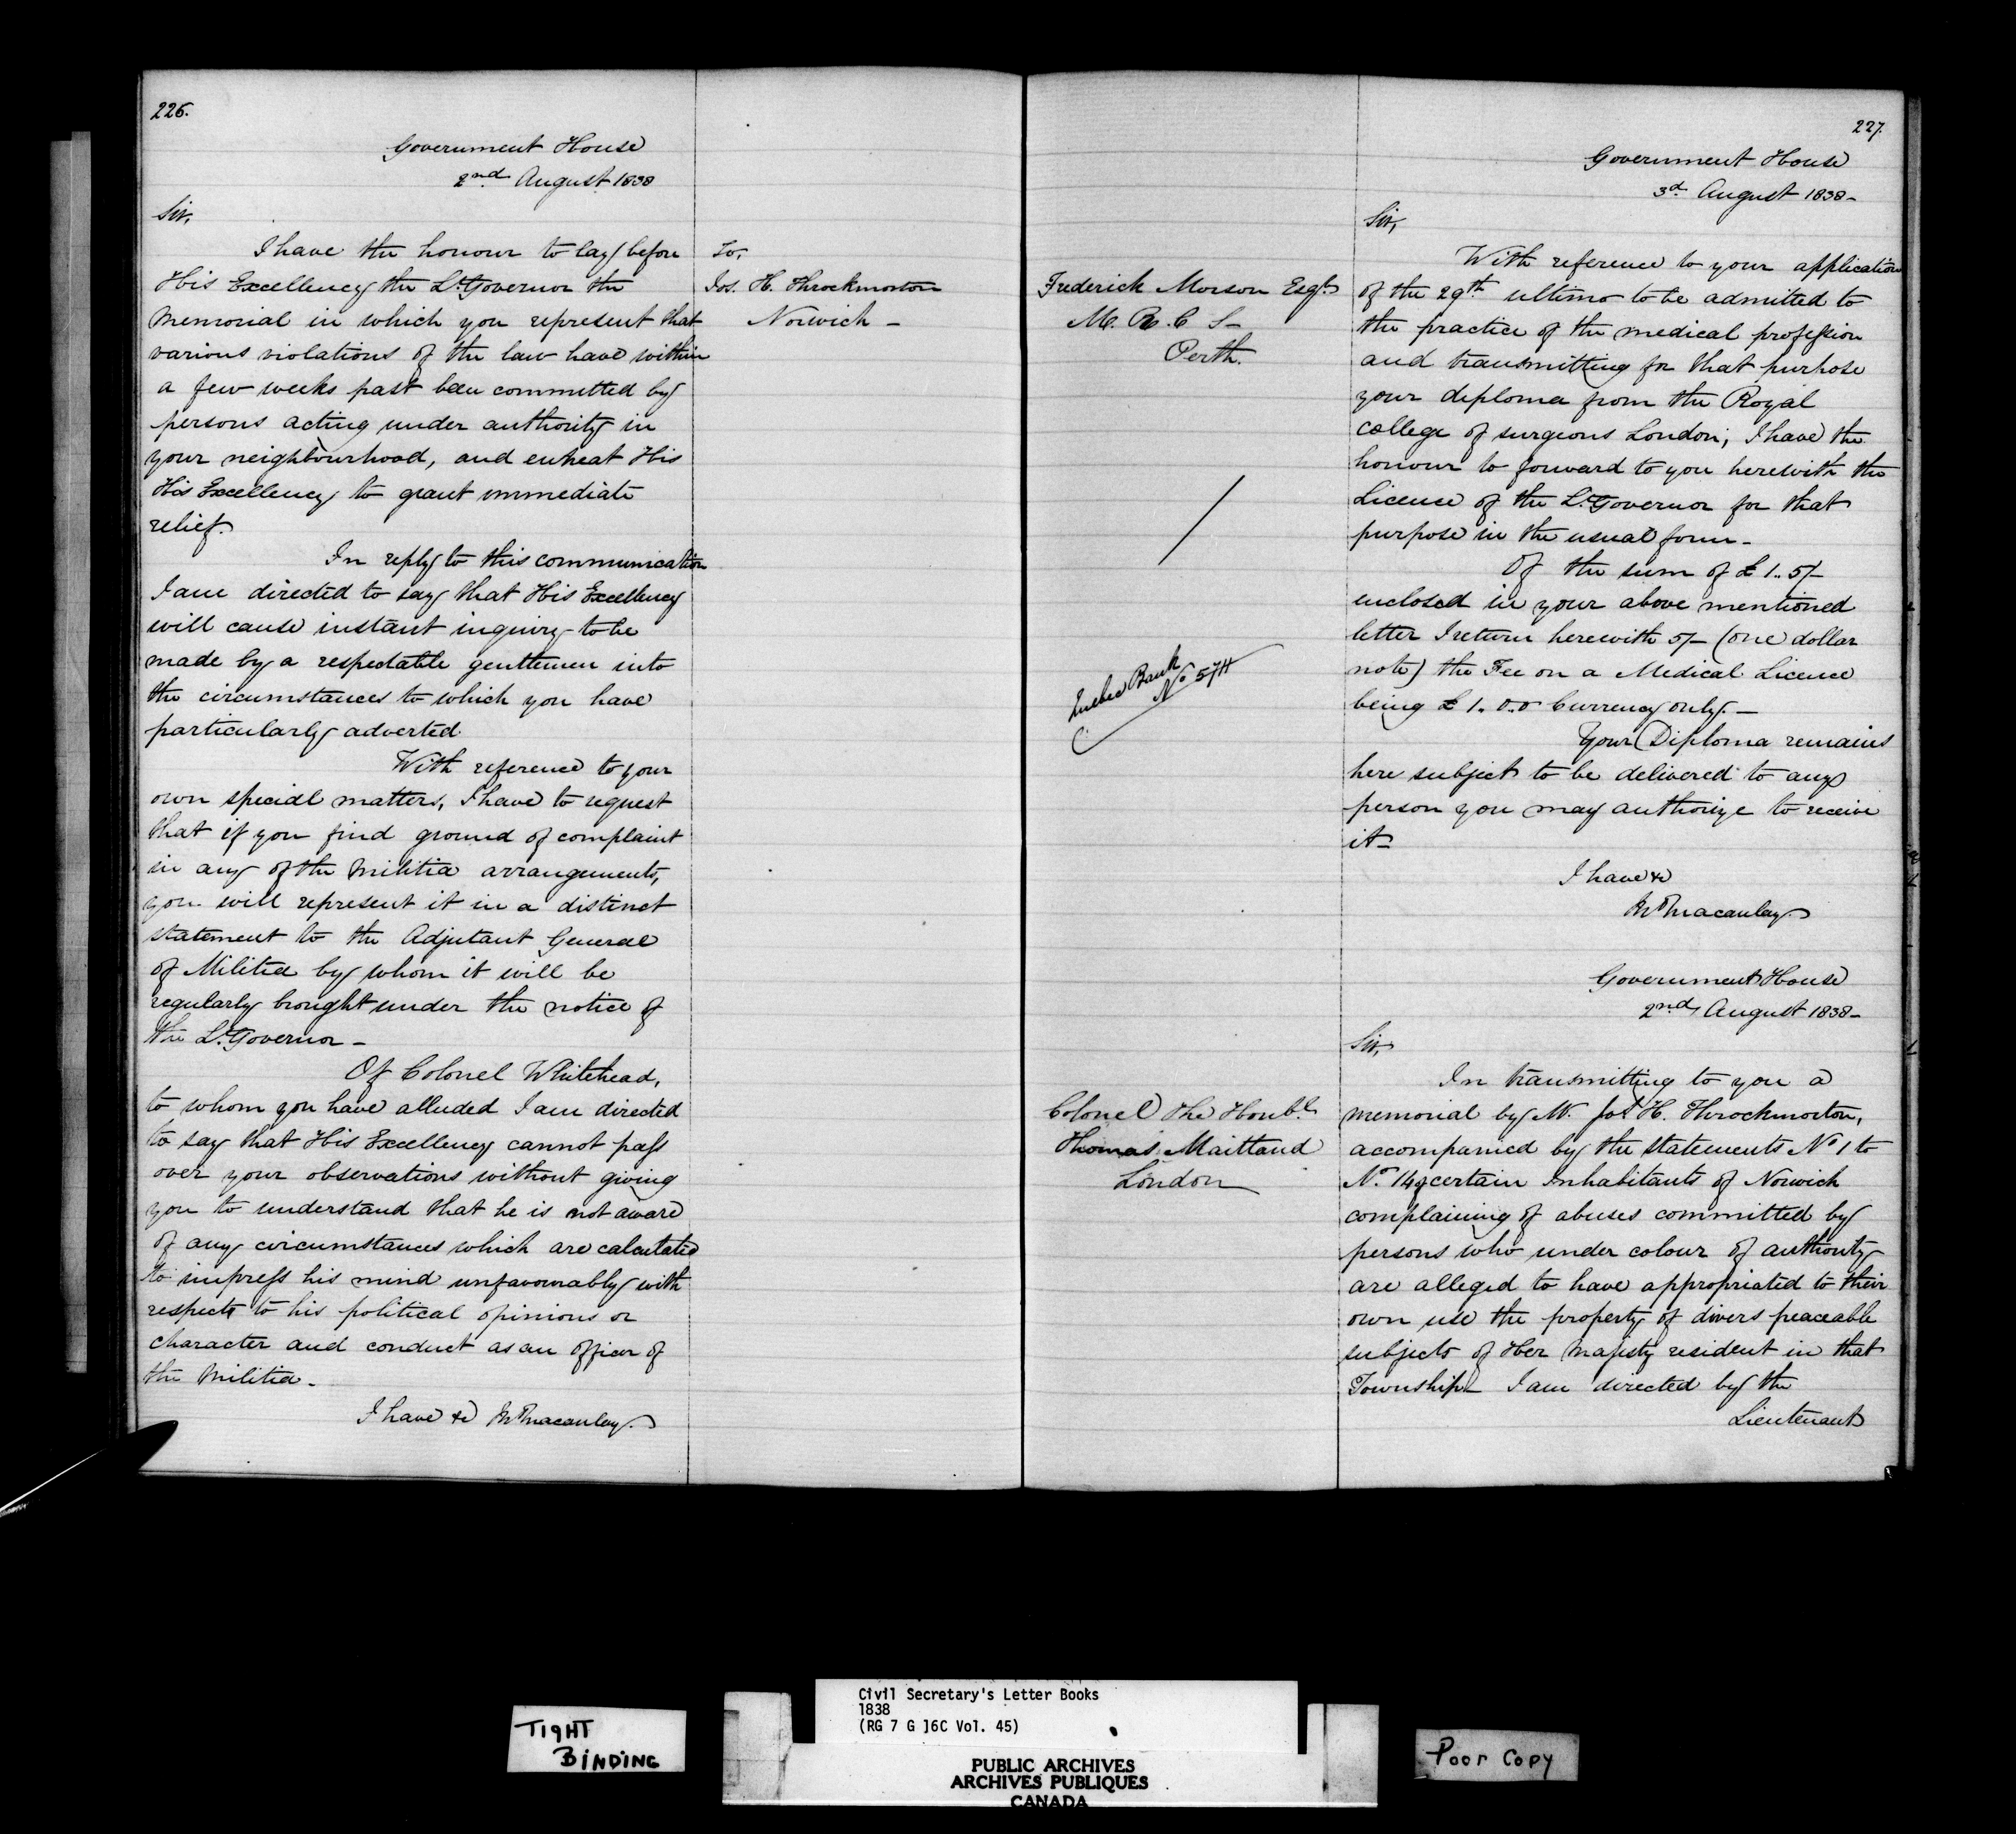 226.
Government House
2nd August 1838
Sir,
I have the honour to lay before
His Excellency the Lt. Governor the
Memorial in which you represent that
various violations of the law have within
a few weeks past been committed by
persons acting under authority in
your neighbourhood, and entreat His
His Excellency to grant immediate
relief.
In reply to this communication
I am directed to say that His Excellency
will cause instant inquiry to be
made by a respectable gentlemen into
the circumstances to which you have
particularly adverted.
With reference to your
own special matters, I have to request
that if you find ground of complaint
in any of the Militia arrangements,
you will represent it in a distinct
statement to the Adjutant General
of Militia by whom it will be
regularly brought under the notice of
the Lt. Governor -
Of Colonel Whitehead,
to whom you have alluded I am directed
to say that His Excellency cannot pass
over your observations without giving
you to understand that he is not aware
of any circumstances which are calculated
to impress his mind unfavourably with
respect to his political opinions or
character and conduct as an officer of
the Militia -
I have &c Jn Macaulay.
To,
Jos. H. Throckmorton
Norwich -
227.
Government House
3d August 1838 -
Sir,
With reference to your application
of the 29th ultimo to be admitted to
the practice of the medical profession
and transmitting for that purpose
your diploma from the Royal
college of surgeons London; I have the
honour to forward to you herewith the
Licence of the Lt. Governor for that
purpose in the usual form -
Of the sum of £ 1..5/-
enclosed in your above mentioned
letter I return herewith 5/- (one dollar
note) the Fee on a Medical Licence
being £ 1.0.0 Currency only. -
Your Diploma remains
here subject to be delivered to any
person you may authorize to receive
it -
I have &c
Jn Macaulay
Frederick Morson Esqr.
M. R. C S -
Perth.
Quebec Bank
No 574
Government House
2nd August 1838 -
Sir,
In transmitting to you a
memorial by Mr. Jos H. Throckmorton,
accompanied by the statements No 1 to
No. 14 of certain Inhabitants of Norwich
complaining of abuses committed by
persons who under colour of authority
are alleged to have appropriated to their
own use the property of divers peaceable
subjects of Her Majesty resident in that
Township - I am directed by the
Lieutenant
Colonel The Honble
Thomas Maitland
London
TIGHT
BINDING
Civil Secretary's Letter Books
1838
(RG 7 G 16C Vol. 45)
PUBLIC ARCHIVES
ARCHIVES PUBLIQUES
CANADA
Poor Copy